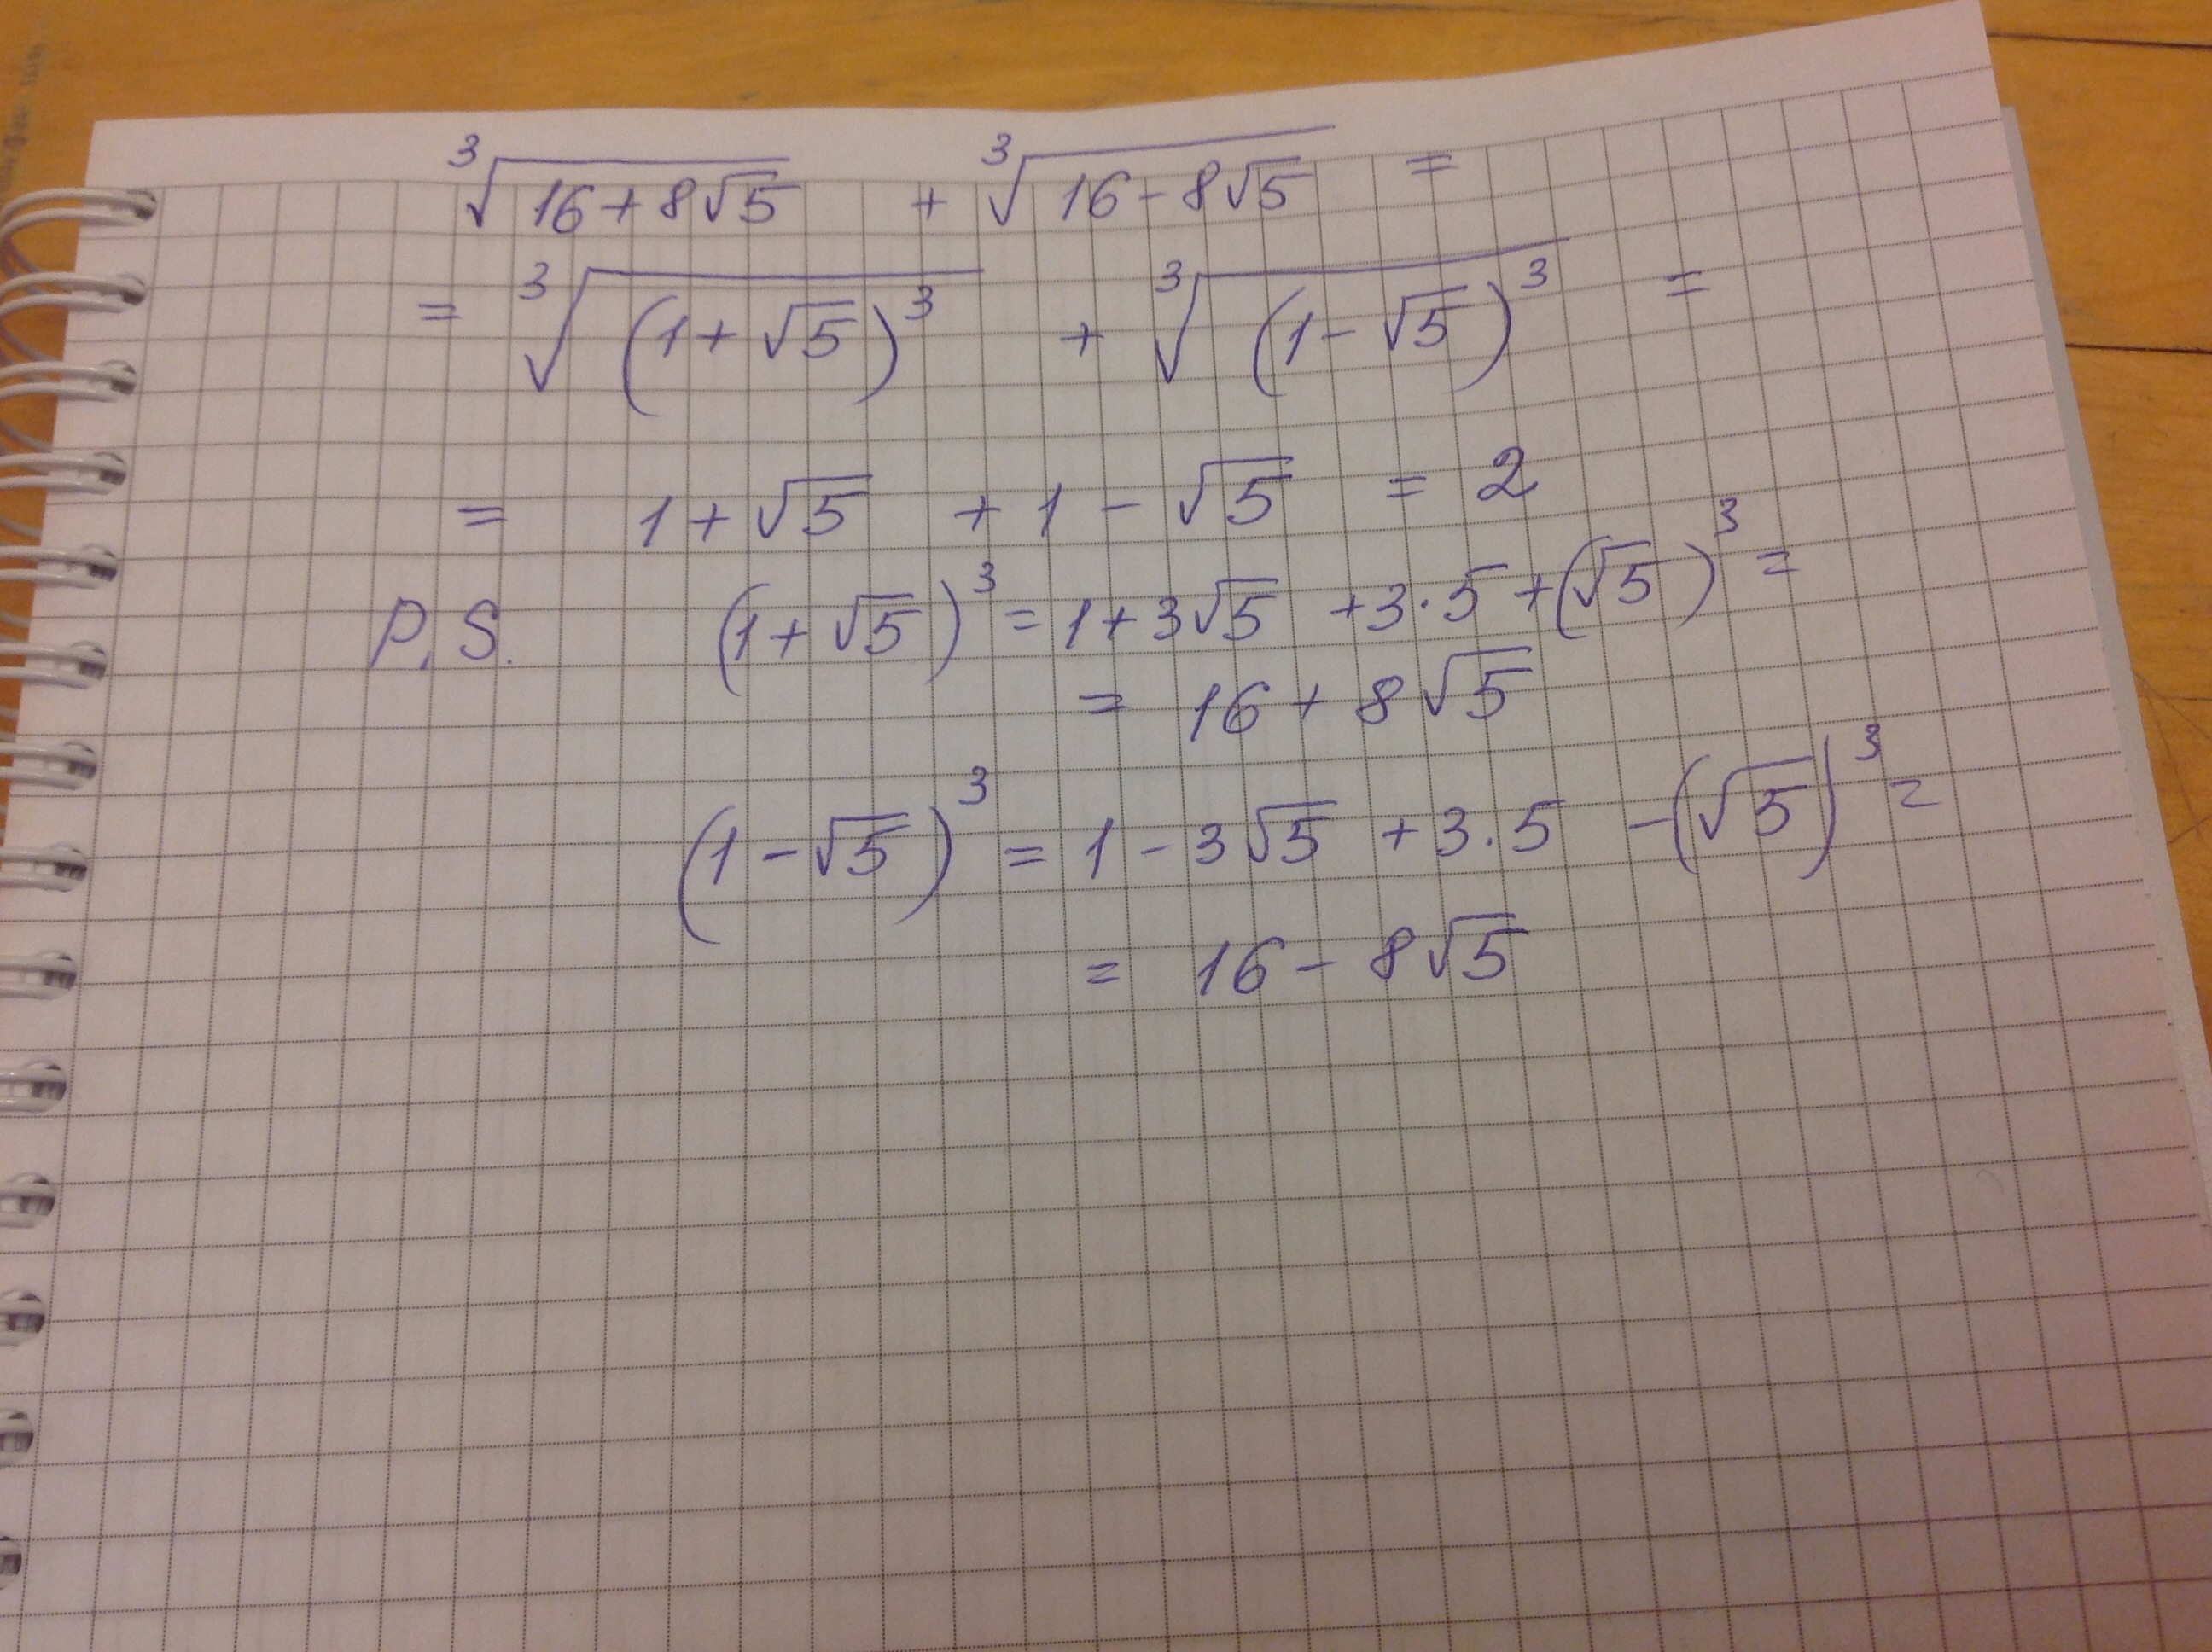 ∛(16+8√5) + ∛(16-8√5) =
= ∛((1+√5)³) + ∛((1-√5)³) =
= 1+√5 + 1-√5 = 2
P.S. (1+√5)³ = 1+3√5 +3·5+(√5)³ =
= 16+8√5
(1-√5)³ = 1-3√5 +3·5 -(√5)³ =
= 16-8√5